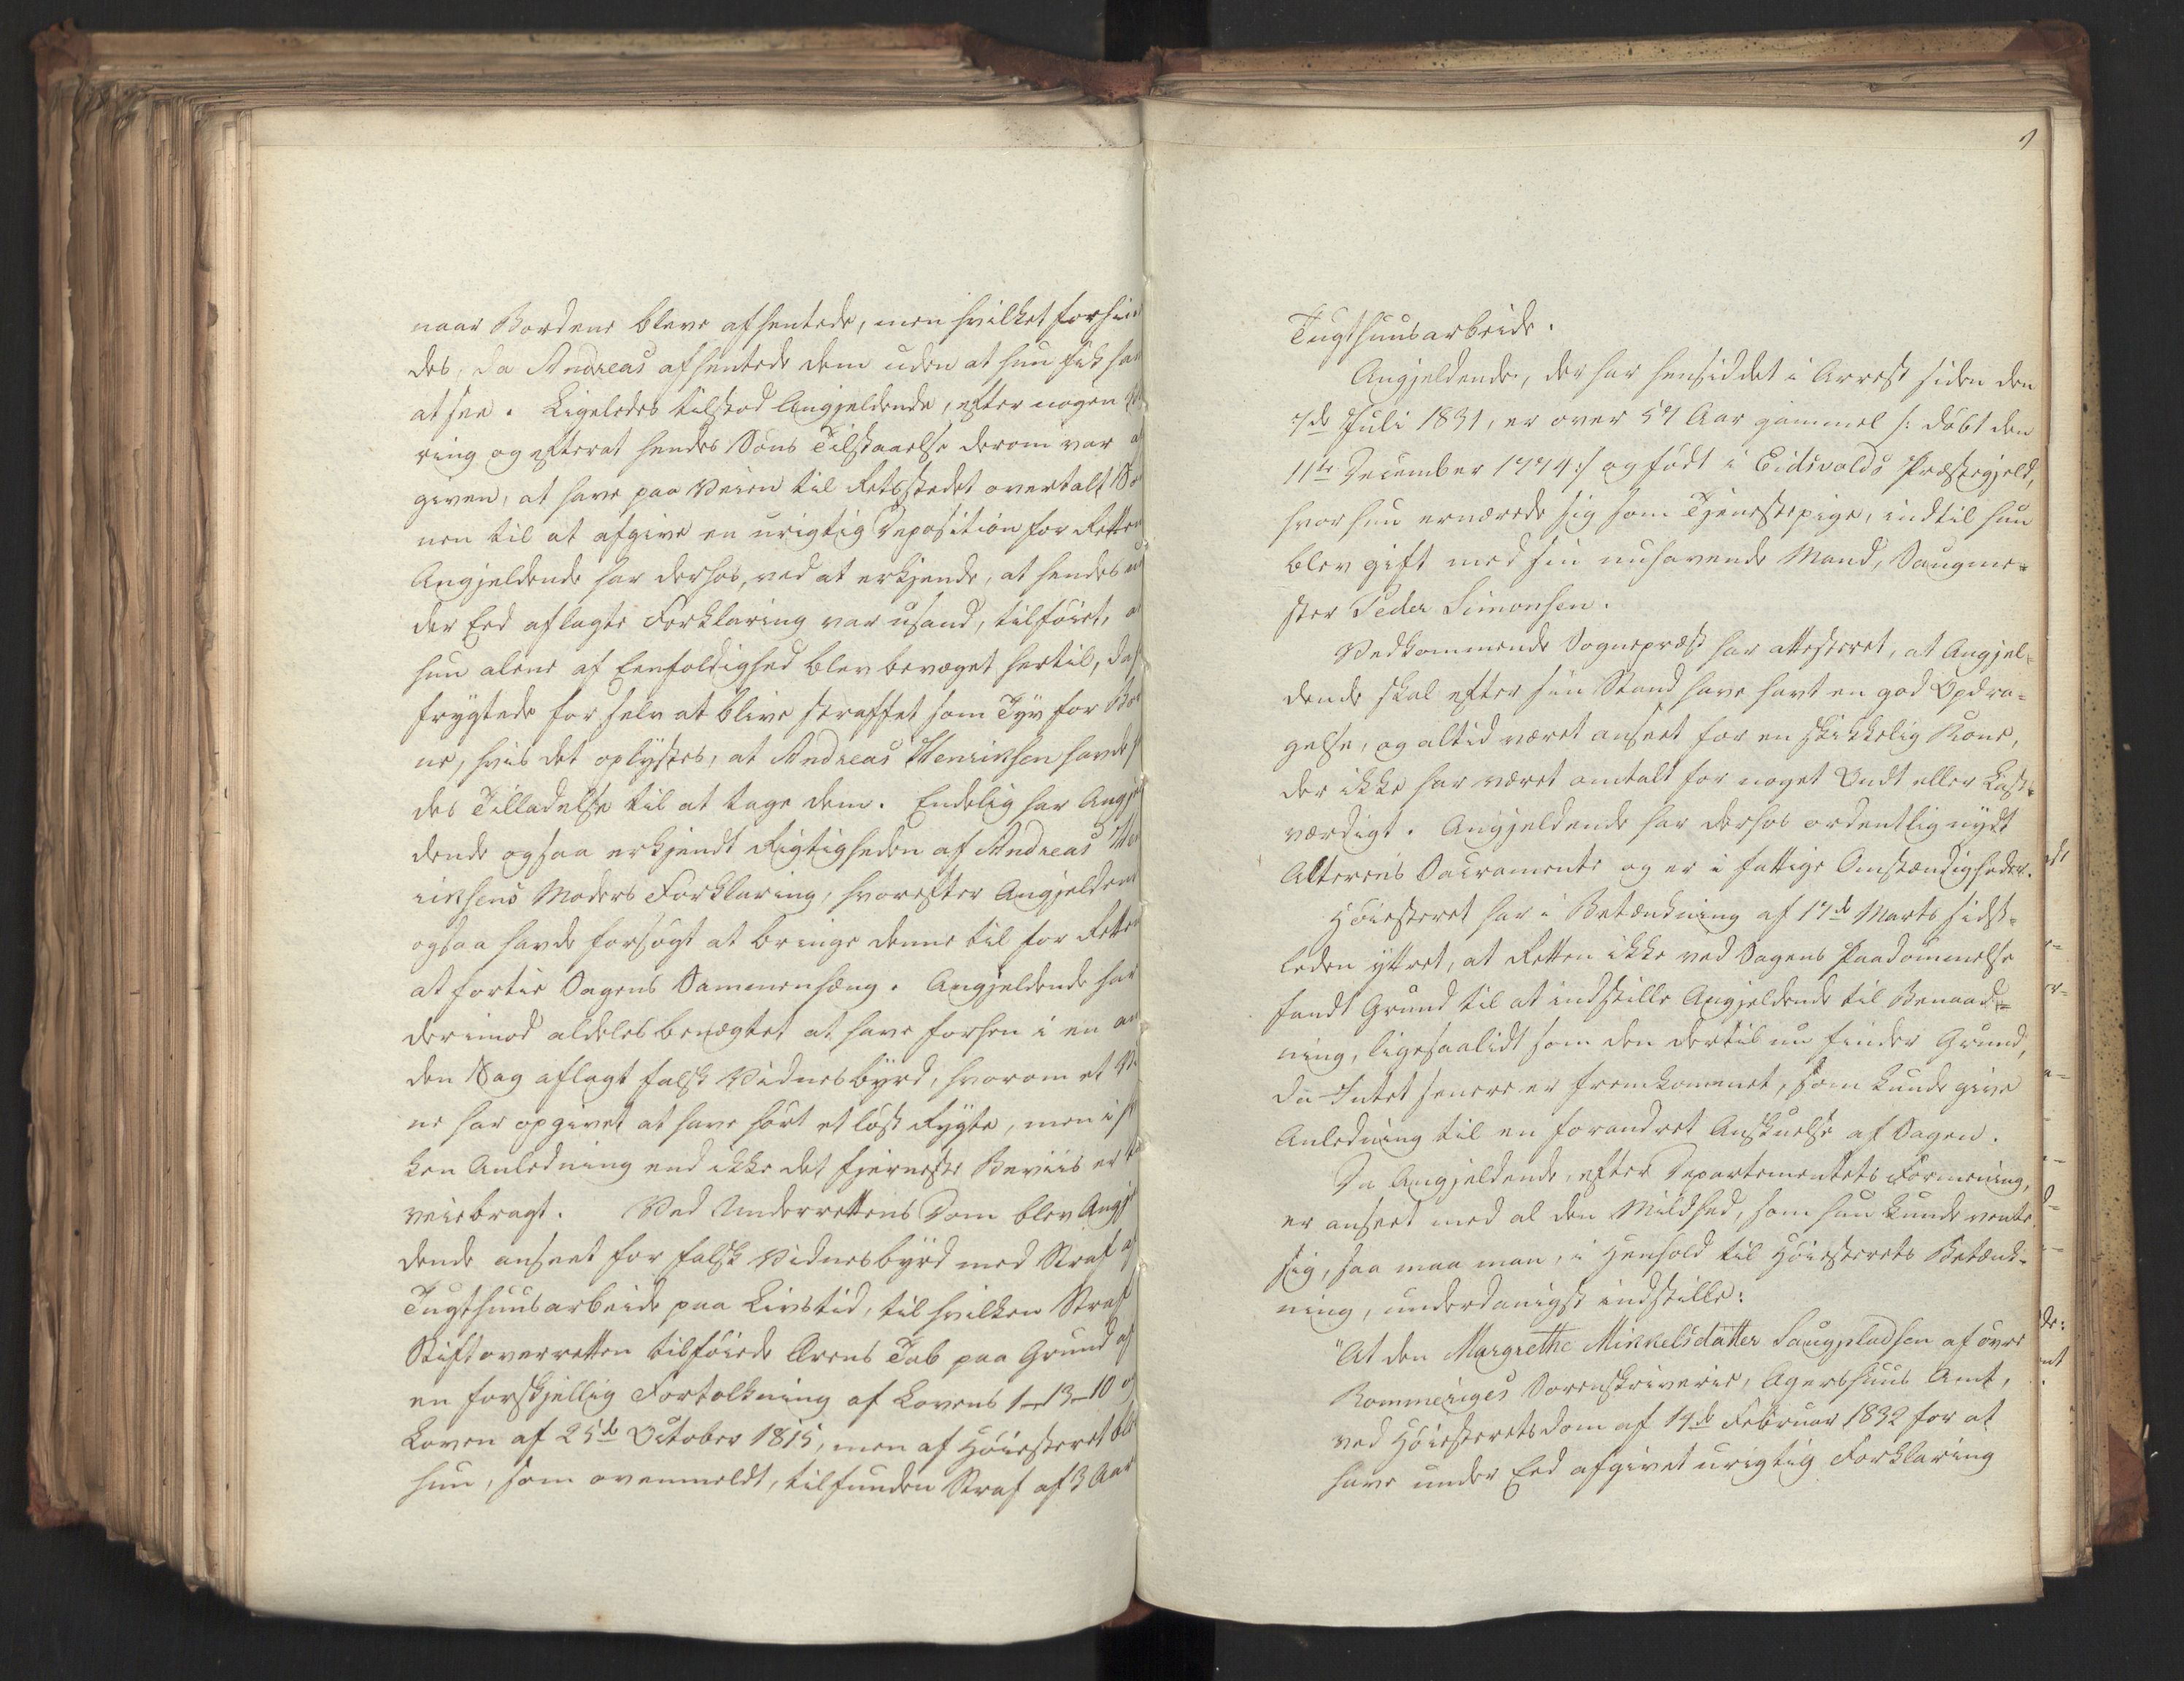 naar Bordene bleve afhentede, men hvilket forhin
des, da Andreas afhentede dem uden at hun fik ham
at see. Ligeledes tilstod Angjeldende, efter nogen
ring og efterat hendes Søns Tilstaaelse derom var af
given, at have paa Veien til Retsstedet overtalt Søn
nen til at afgive en urigtig Deposition for Retten
Angjeldende har derhos, ved at erkjende, at hendes un
der Eed aflagte Forklaring var usand, tilføiet, at
hun alene af Eenfoldighed blev bevæget hertil, da h
frygtede for selv at blive straffet som Tyv for Bor
ne, hvis det oplystes, at Andreas Henriksen havde h
des Tilladelse til at tage dem. Endelig har Angjel
dende ogsaa erkjendt Rigtigheden af Andreas Hen
riksens Moders Forklaring, hvorefter Angjeldende
ogsaa havde forsøgt at bringe denne til for Retten
at fortie Sagens Sammenhæng. Angjeldende har
derimod aldeles benægtet at have forhen i en an
den Sag aflagt falsk Vidnesbyrd, hvorom et Vid
ne har opgivet at have hørt et løst Rygte, men i h
ken Anledning end ikke det fjerneste Beviis er
veiebragt. Ved Underrettens Dom blev Angjel
dende anseet for falsk Vidnesbyrd med Straf af
Tugthuusarbeide paa Livstid, til hvilken Straf
Stiftoverretten tilføiede Ærens Tab paa Grund af
en forskjellig Fortolkning af Lovens 1-13-10 og
Loven af 25de October 1815, men af Høiesteret blev
hun, som ovenmeldt, tilfunden Straf af 3 Aars
Tugthuusarbeide.
Angjeldende, der har hensiddet i Arrest siden den
7de Juli 1831, er over 57 Aar gammel /: døbt den
11te December 1774 :/ og født i Eidsvolds Præstegjeld,
hvor hun ernærede sig som Tjenestepige, indtil hun
blev gift med sin nuhavende Mand, Saugme-
ster Peder Simonsen.
Vedkommende Sognepræst har attesteret, at Angjel-
dende skal efter sin Stand have havt en god Opdra-
gelse, og altid været anseet for en skikkelig Kone,
der ikke har været omtalt for noget Ondt eller Last-
værdigt. Angjeldende har derhos ordentlig nydt
Alterens Sacramente og er i fattige Omstændigheder.
Høiesteret har i Betænkning af 17de Marts sidst-
leden yttret, at Retten ikke ved Sagens Paadømmelse
fandt Grund til at indstille Angjeldende til Benaad-
ning, ligesaalidt som den dertil nu finder Grund,
da Intet senere er fremkommet, som kunde give
Anledning til en forandret Anskuelse af Sagen.
Da Angjeldende, efter Departementets Formening,
er anseet med al den Mildhed, som hun kunde vente
sig, saa maa man, i Henhold til Høiesterets Betænk-
ning, underdanigst indstille:
"At den Margrethe Mikkelsdatter Saugpladsen af øvre
Rommeriges Sorenskriverie, Agershuus Amt,
ved Høiesteretsdom af 14de Februar 1832 for at
have under Eed afgivet urigtig Forklaring